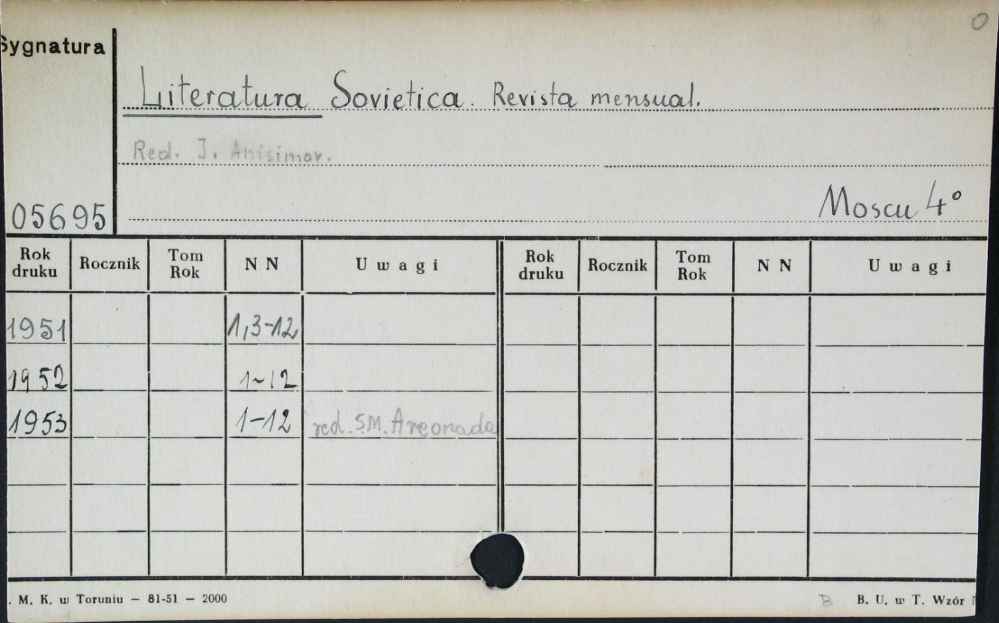 Sygnatura
Literatura Sovietica. Revista mensual.
Red. I. Anisimov.
05695
Moscu 4°
Rok druku Rocznik Tom Rok N N Uwagi Rok druku Rocznik Tom Rok N N Uwagi
1951 1,3-12
1952 1-12
1953 1-12 red. S.M. Arconada
. M. K. w Toruniu — 81-51 — 2000
B B. U. w T. Wzór